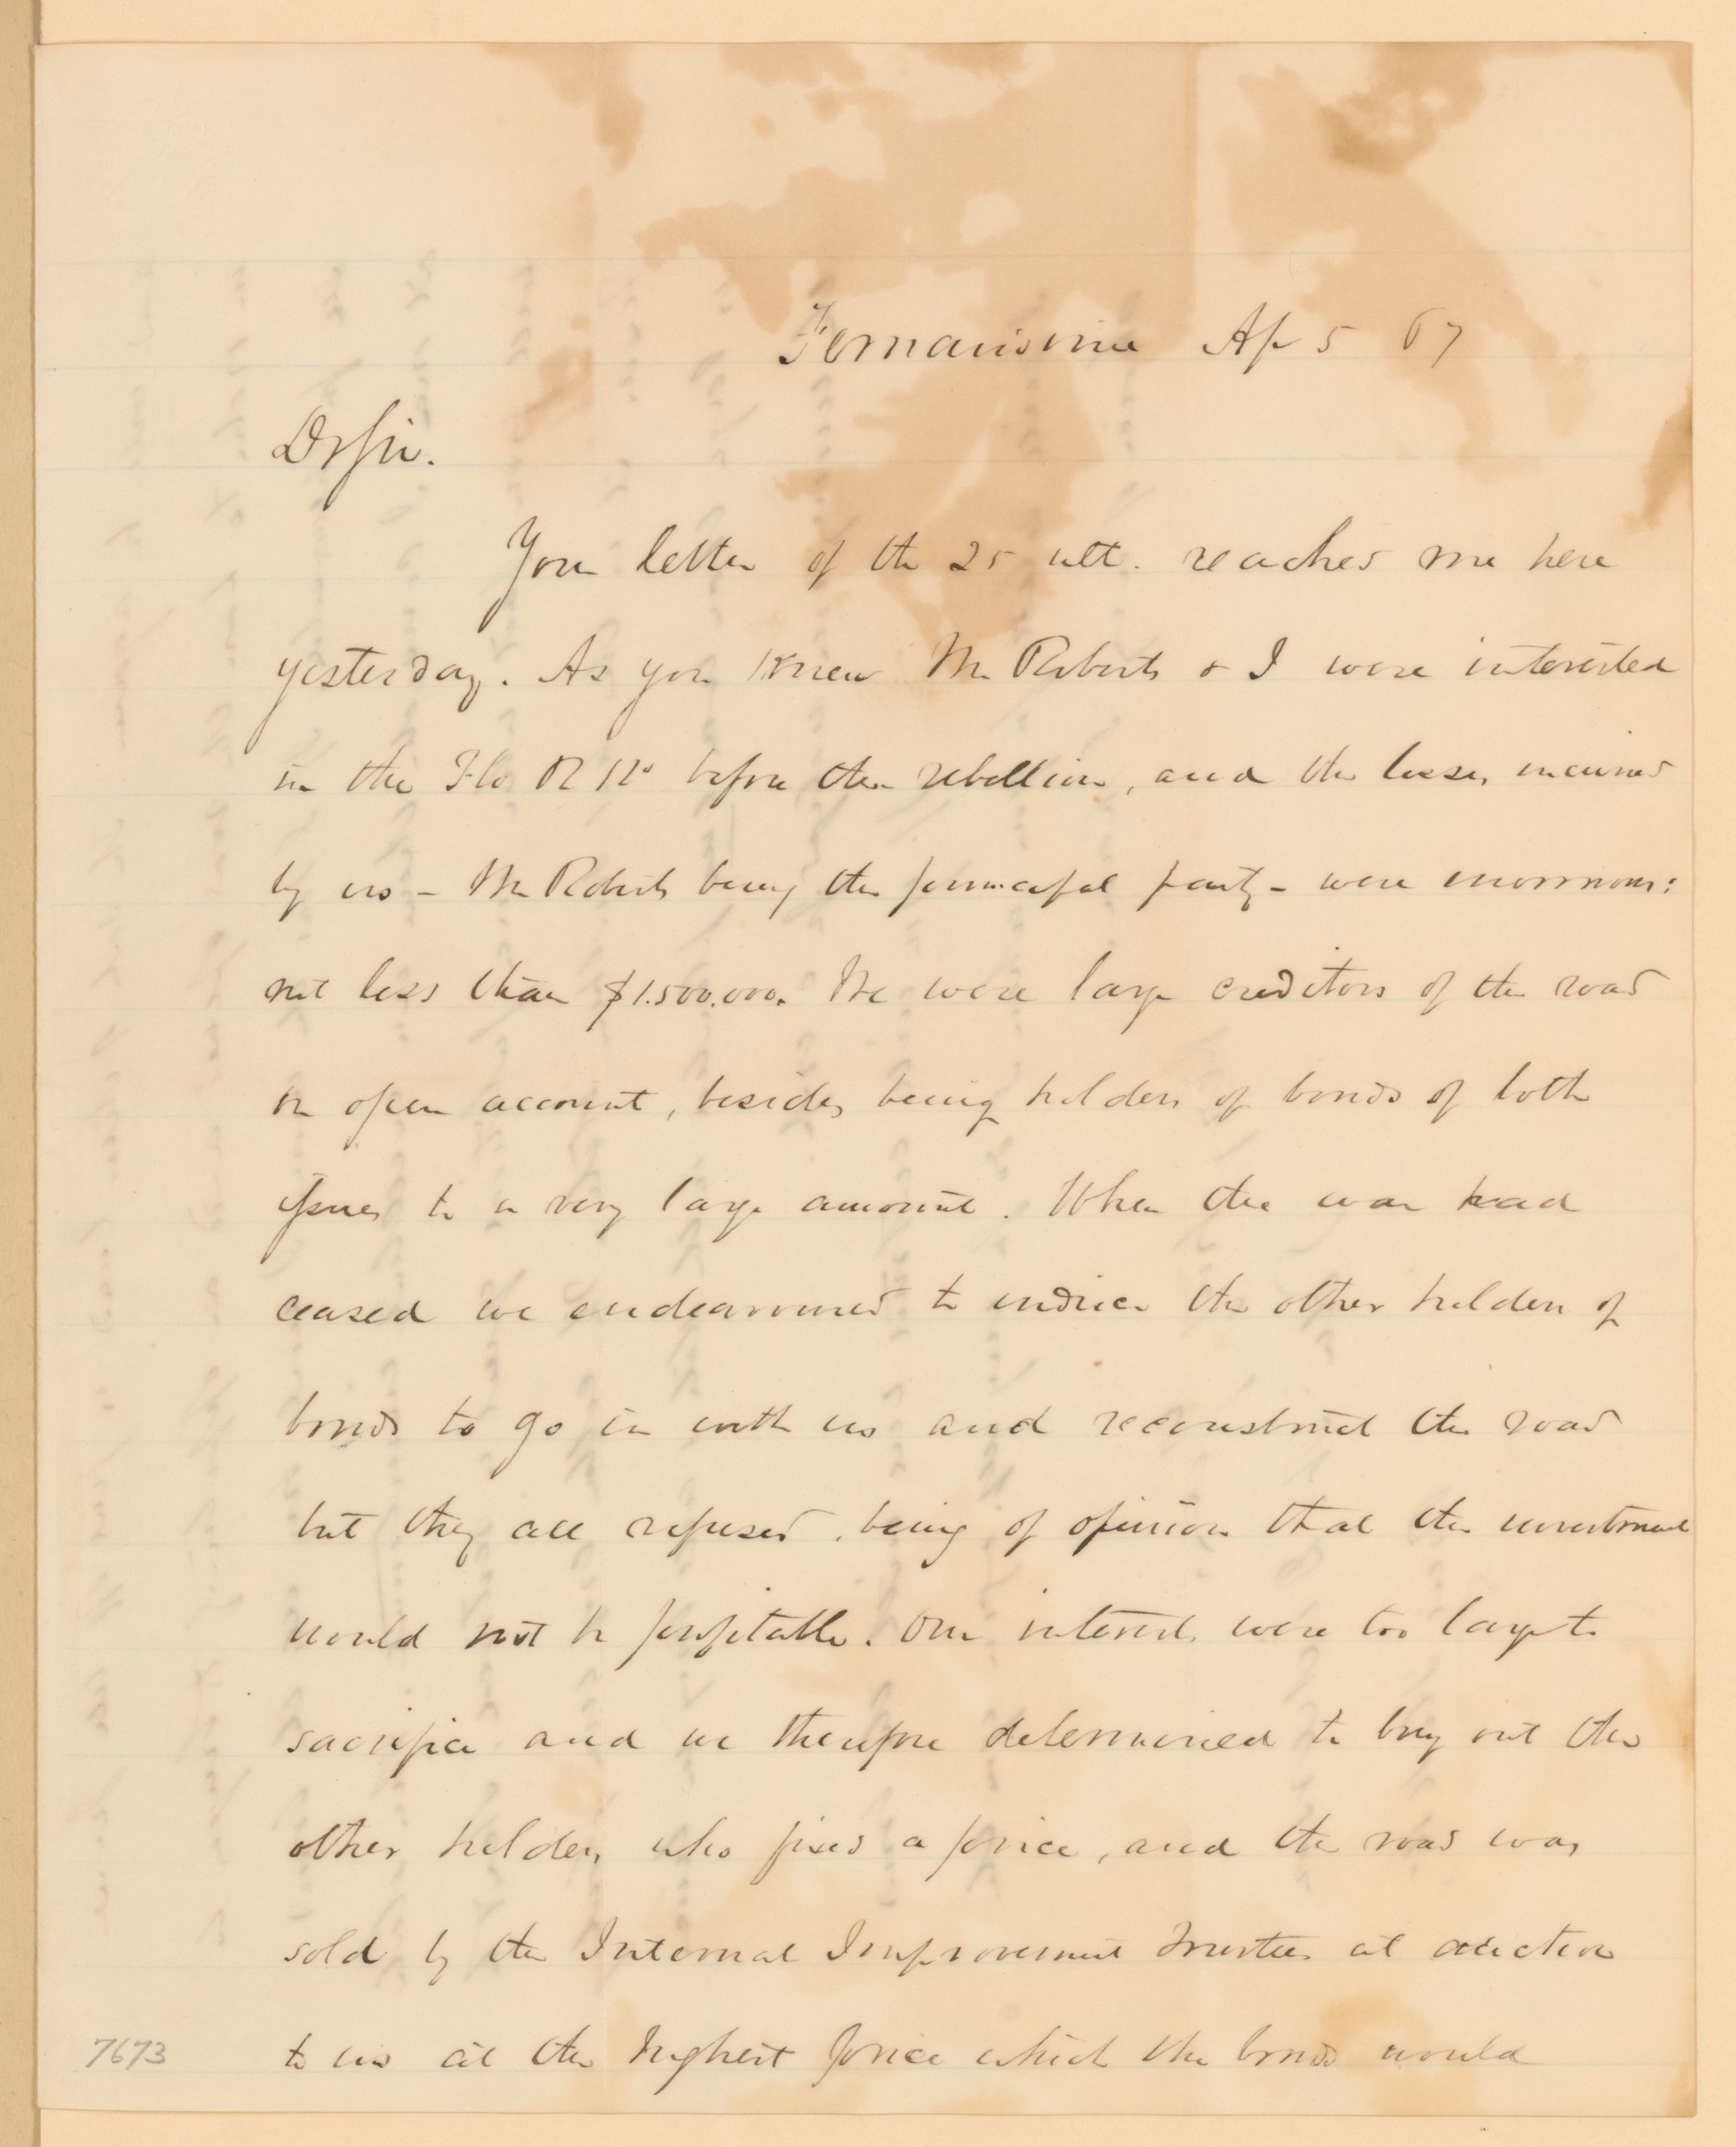 Fernandina Ap 5 67
Dr Sir.
Your letter of the 25 ult. reached me here
yesterday. As you know Mr Roberts & I were interested
in the Flo R Rd before the rebellion, and the losses incurred
by us - Mr Roberts being the principal party - were enormous:
not less than $1.500.000. We were large creditors of the road
on open account, besides being holders of bonds of both
issues to a very large amount. When the war had
ceased we endeavoured to induce the other holders of
bonds to go in with us and reconstruct the road
but they all refused, being of opinion that the investment
would not be profitable. Our interests were too large to
sacrifice and we therefore determined to buy out the
other holders who fixed a price, and the road was
sold by the Internal Improvement Trustees at auction
to us at the highest price which the bonds would
7673